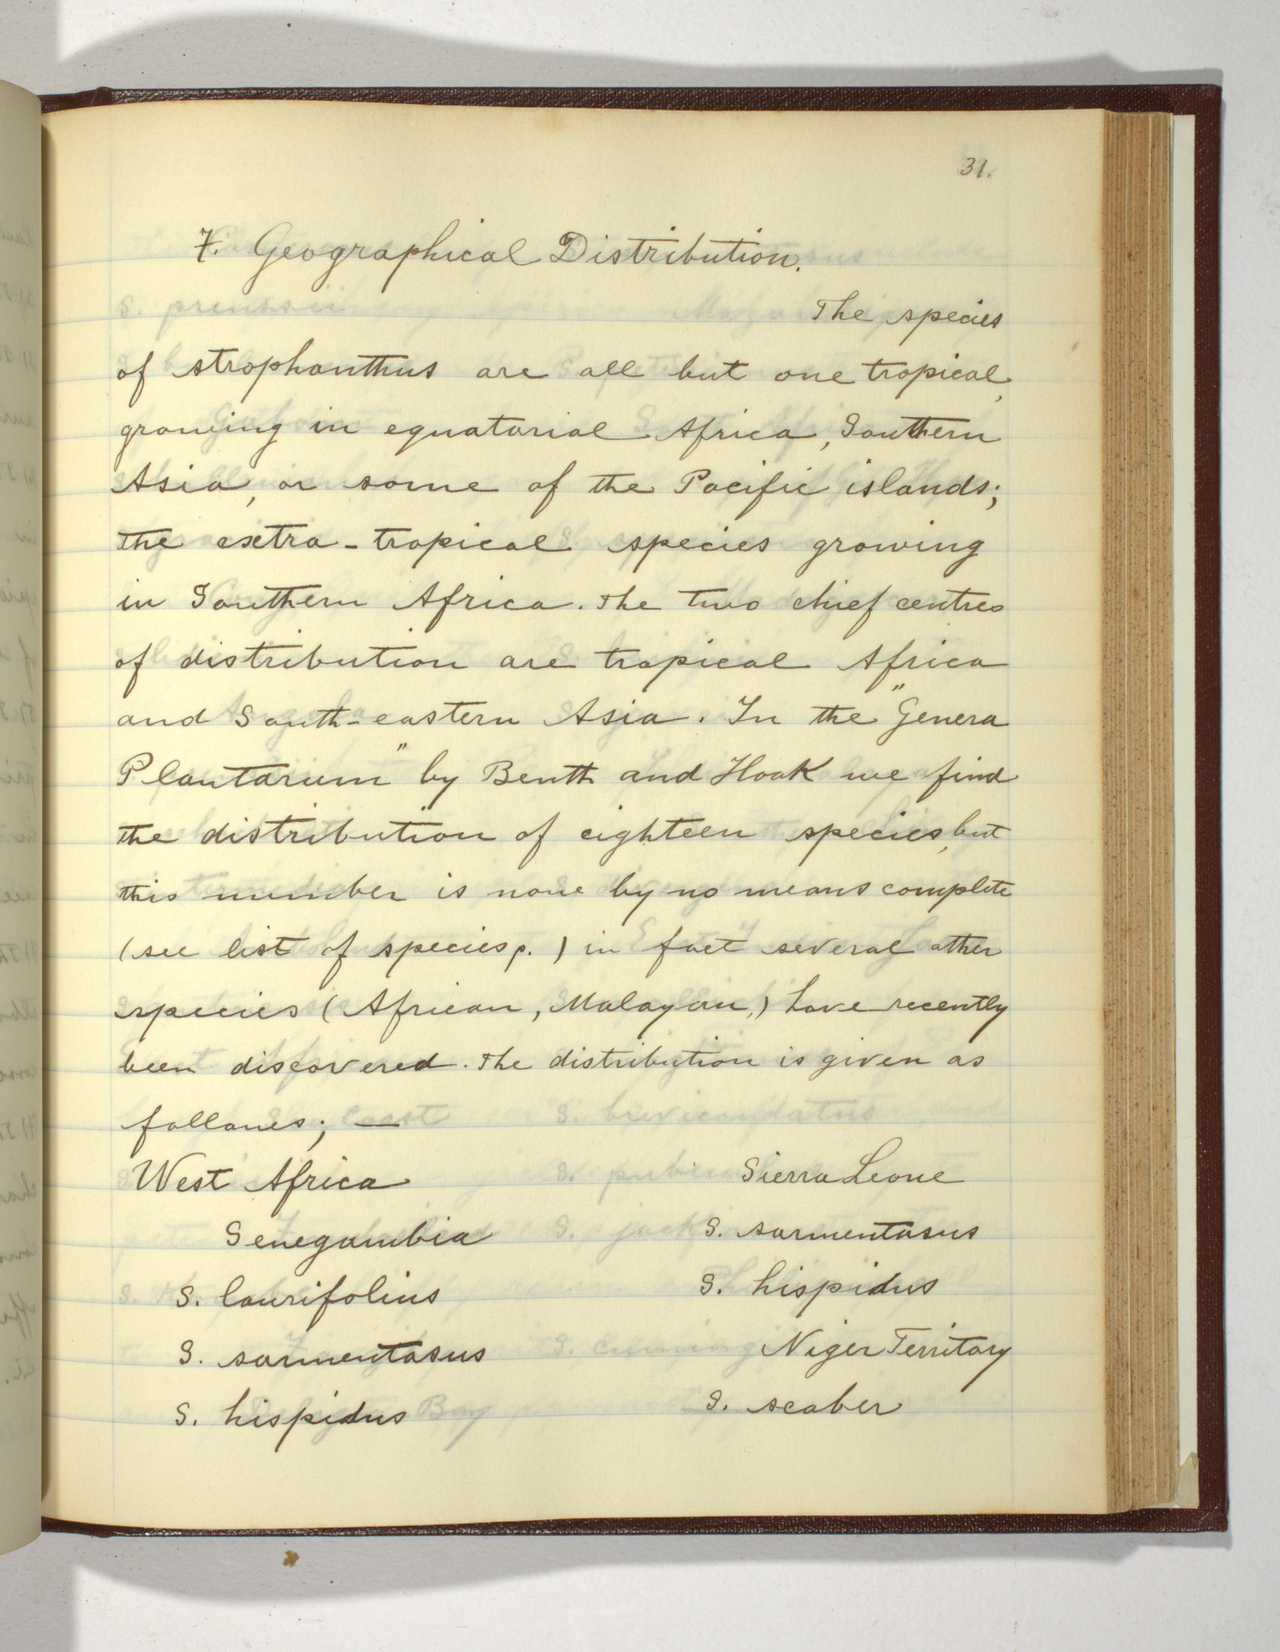 31.
7. Geographical Distribution.
The species
of strophanthus are all but one tropical,
growing in equatorial Africa, Southern
Asia, or some of the Pacific islands;
the extra-tropical species growing
in Southern Africa. The two chief centres
of distribution are tropical Africa
and South-eastern Asia. In the "Genera
Plantarum" by Benth and Hook we find
the distribution of eighteen species, but
this number is now by no means complete
(see list of species p. ) in fact several other
species (African, Malayan,) have recently
been discovered. The distribution is given as
follows; —
West Africa
Senegambia
S. laurifolius
S. sarmentosus
S. hispidus
Sierra Leone
S. sarmentosus
S. hispidus
Niger Territory
S. scaber